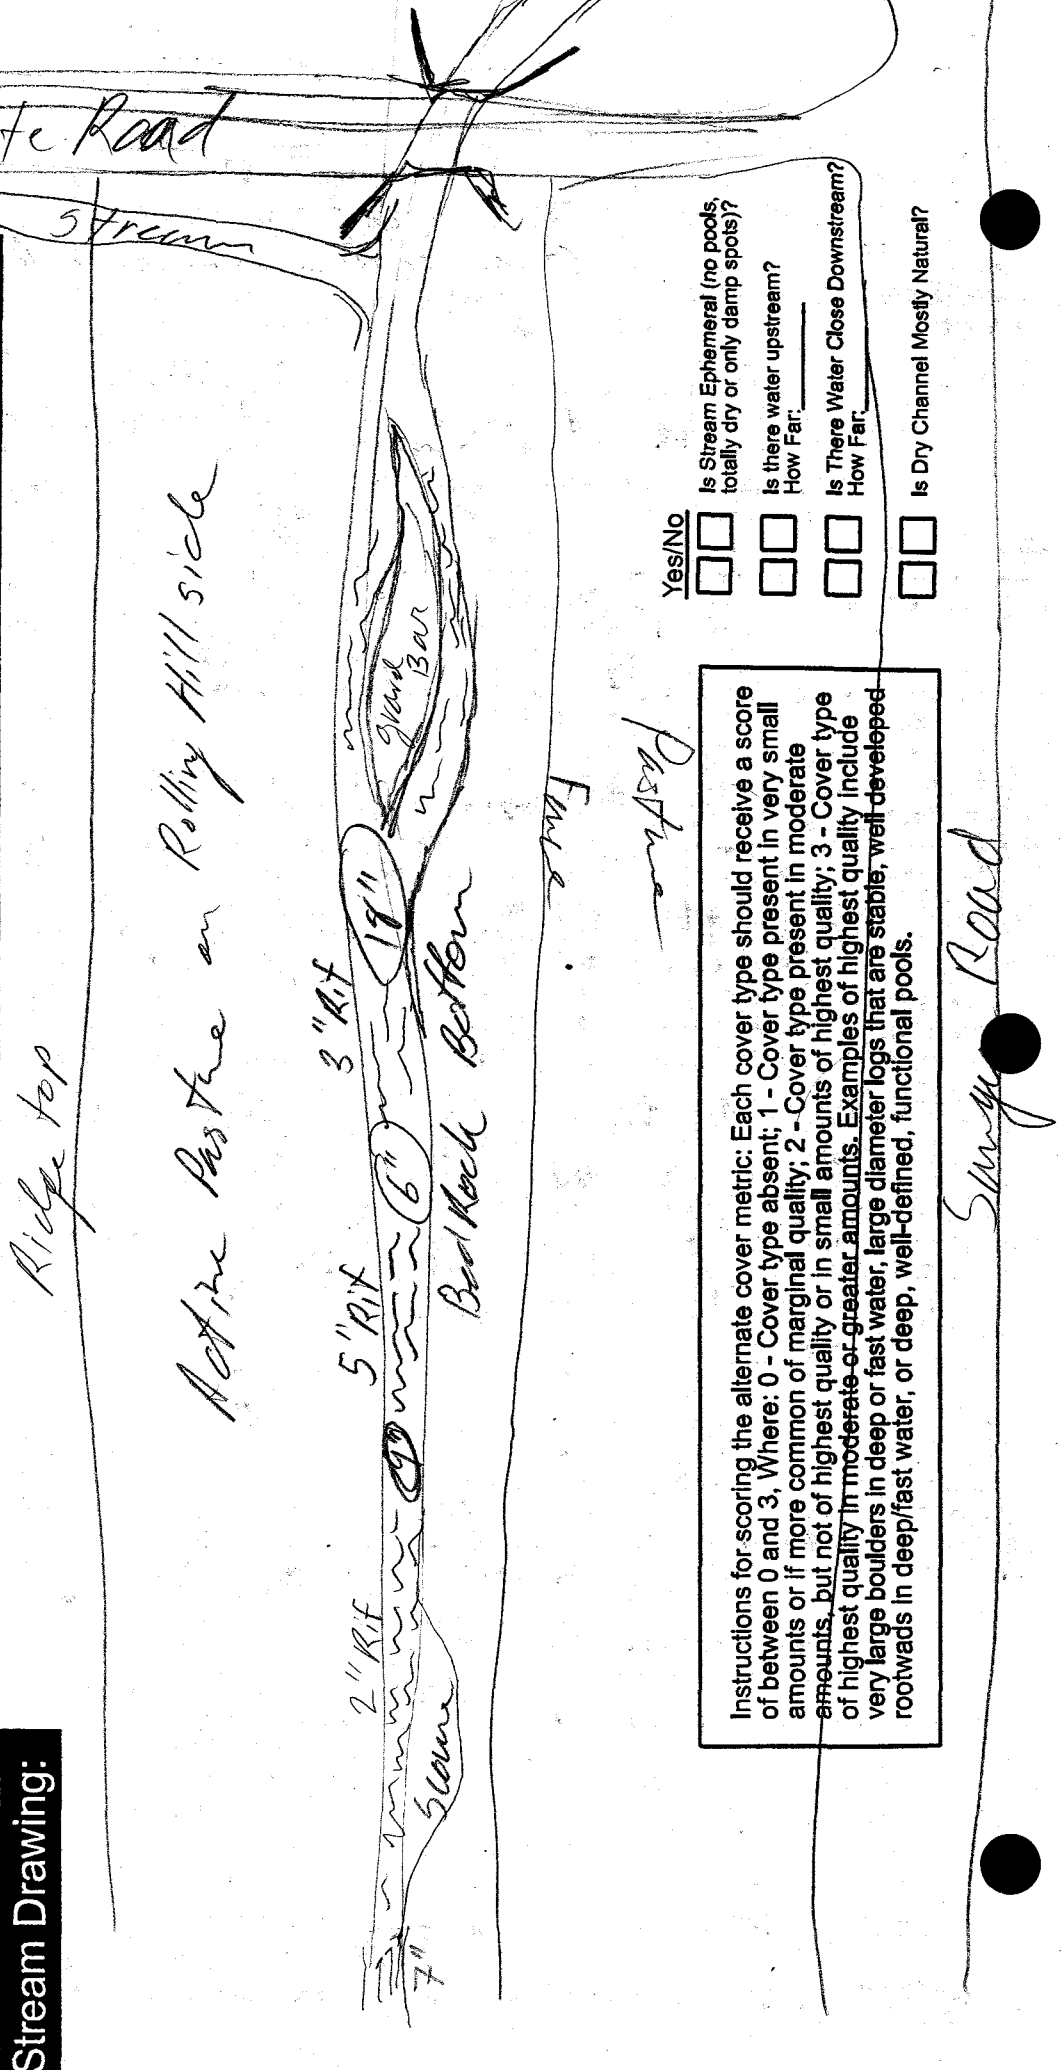 Stream Drawing:
te Road
Stream
Ridge top
Active Pasture on Rolling Hill side
2" Rif
5" Rif
3" Rif
7"
Scour
9"
6"
18"
gravel
Bar
BedRock Bottom
Fence
Pasture
Yes/No
Is Stream Ephemeral (no pools,
totally dry or only damp spots)?
Is there water upstream?
How Far:
Is There Water Close Downstream?
How Far:
Is Dry Channel Mostly Natural?
Instructions for scoring the alternate cover metric: Each cover type should receive a score
of between 0 and 3, Where: 0 - Cover type absent; 1 - Cover type present in very small
amounts or if more common of marginal quality; 2 - Cover type present in moderate
amounts, but not of highest quality or in small amounts of highest quality; 3 - Cover type
of highest quality in moderate or greater amounts. Examples of highest quality include
very large boulders in deep or fast water, large diameter logs that are stable, well developed
rootwads in deep/fast water, or deep, well-defined, functional pools.
Road